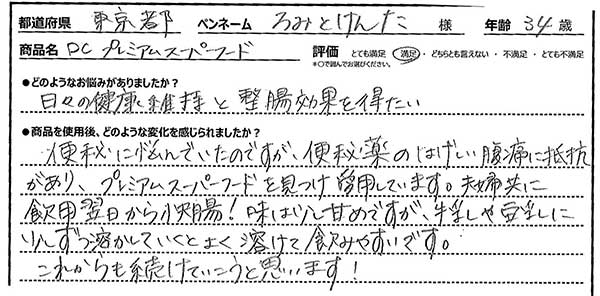 都道府県 東京都 ペンネーム ろみとけんた 様 年齢 34 歳
商品名 DC プレミアムスーパーフード 評価 とても満足 ・ 満足 ・ どちらとも言えない ・ 不満足 ・ とても不満足
*○で囲んでお選びください。
●どのようなお悩みがありましたか？
日々の健康維持と整腸効果を得たい
●商品を使用後、どのような変化を感じられましたか？
便秘に悩んでいたのですが、便秘薬のはげしい腹痛に抵抗
があり、プレミアムスーパーフードを見つけ愛用しています。夫婦共に
飲用翌日から快腸！味は少し甘めですが、牛乳や豆乳に
少しずつ溶かしていくとよく溶けて飲みやすいです。
これからも続けていこうと思います！